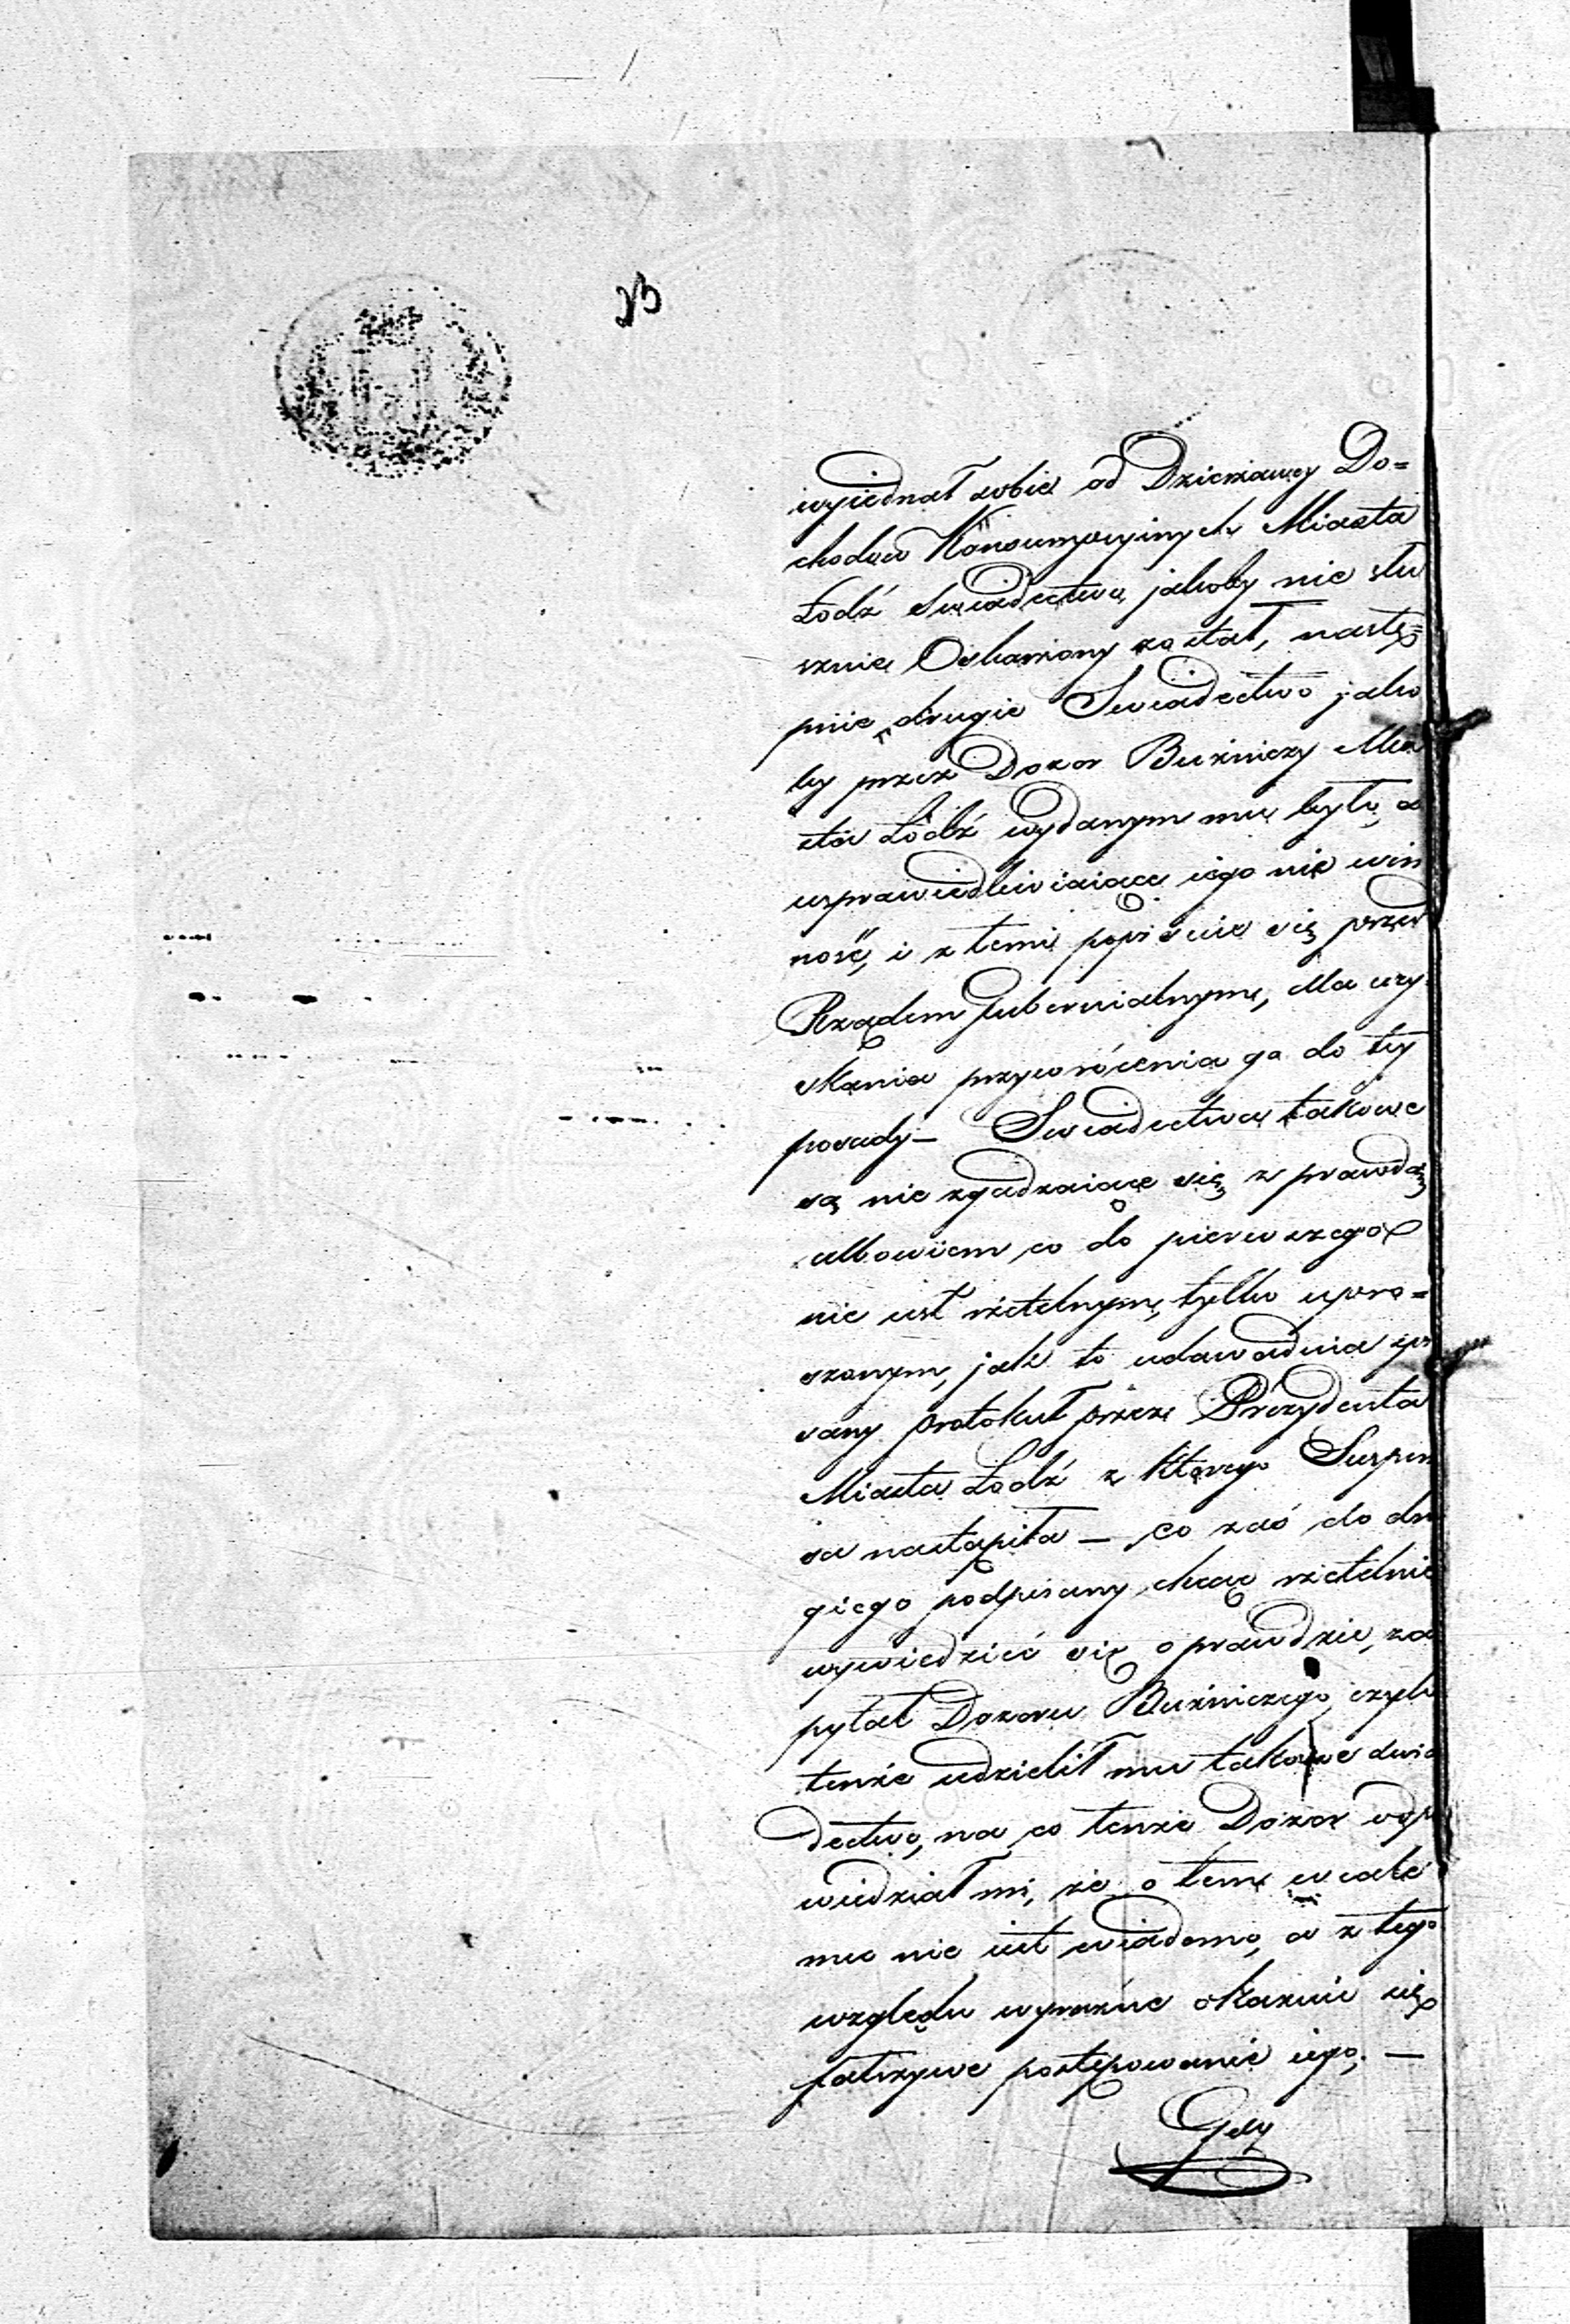 wyiednał sobie od Dzierżawcy Do=
chodów Konsumpcyinych Miasta
Łodź Swiadectwo jakoby nie słu
sznie Oskarżony został, nastę=
pnie drugie Swiadectwo jako
by przez Dozor Bużniczy Mia
sta Łódź wydanym mu było, a
usprawiedliwiaiące iego nie win
ność, i z temi popisuie się przed
Rządem Gubernialnym, dla uzy
skania przywrócenia go do tey
posady – Swiadectwa takowe
są nie zgadzaiące się z prawdą
albowiem co do pierwszego
nie iest rzetelnym, tylko upro=
szonym, jak to udawadnia spi
sany protokuł przez Prezydenta
Miasta Łodź z którego Suspen
sa nastąpiła – co zaś do dru
giego podpisany chcąc rzetelnie
wywiedzieć się o prawdzie, za
pytał Dozoru Bużniczego, czyli
tenże udzielił mu takowe świa
dectwo, na co tenże Dozor odpo
wiedział mi, że o tem wcale
mu nie iest wiadomo, a z tego
względu wyraźne okazuie się
fałszywe postępowanie iego. –
Gdy